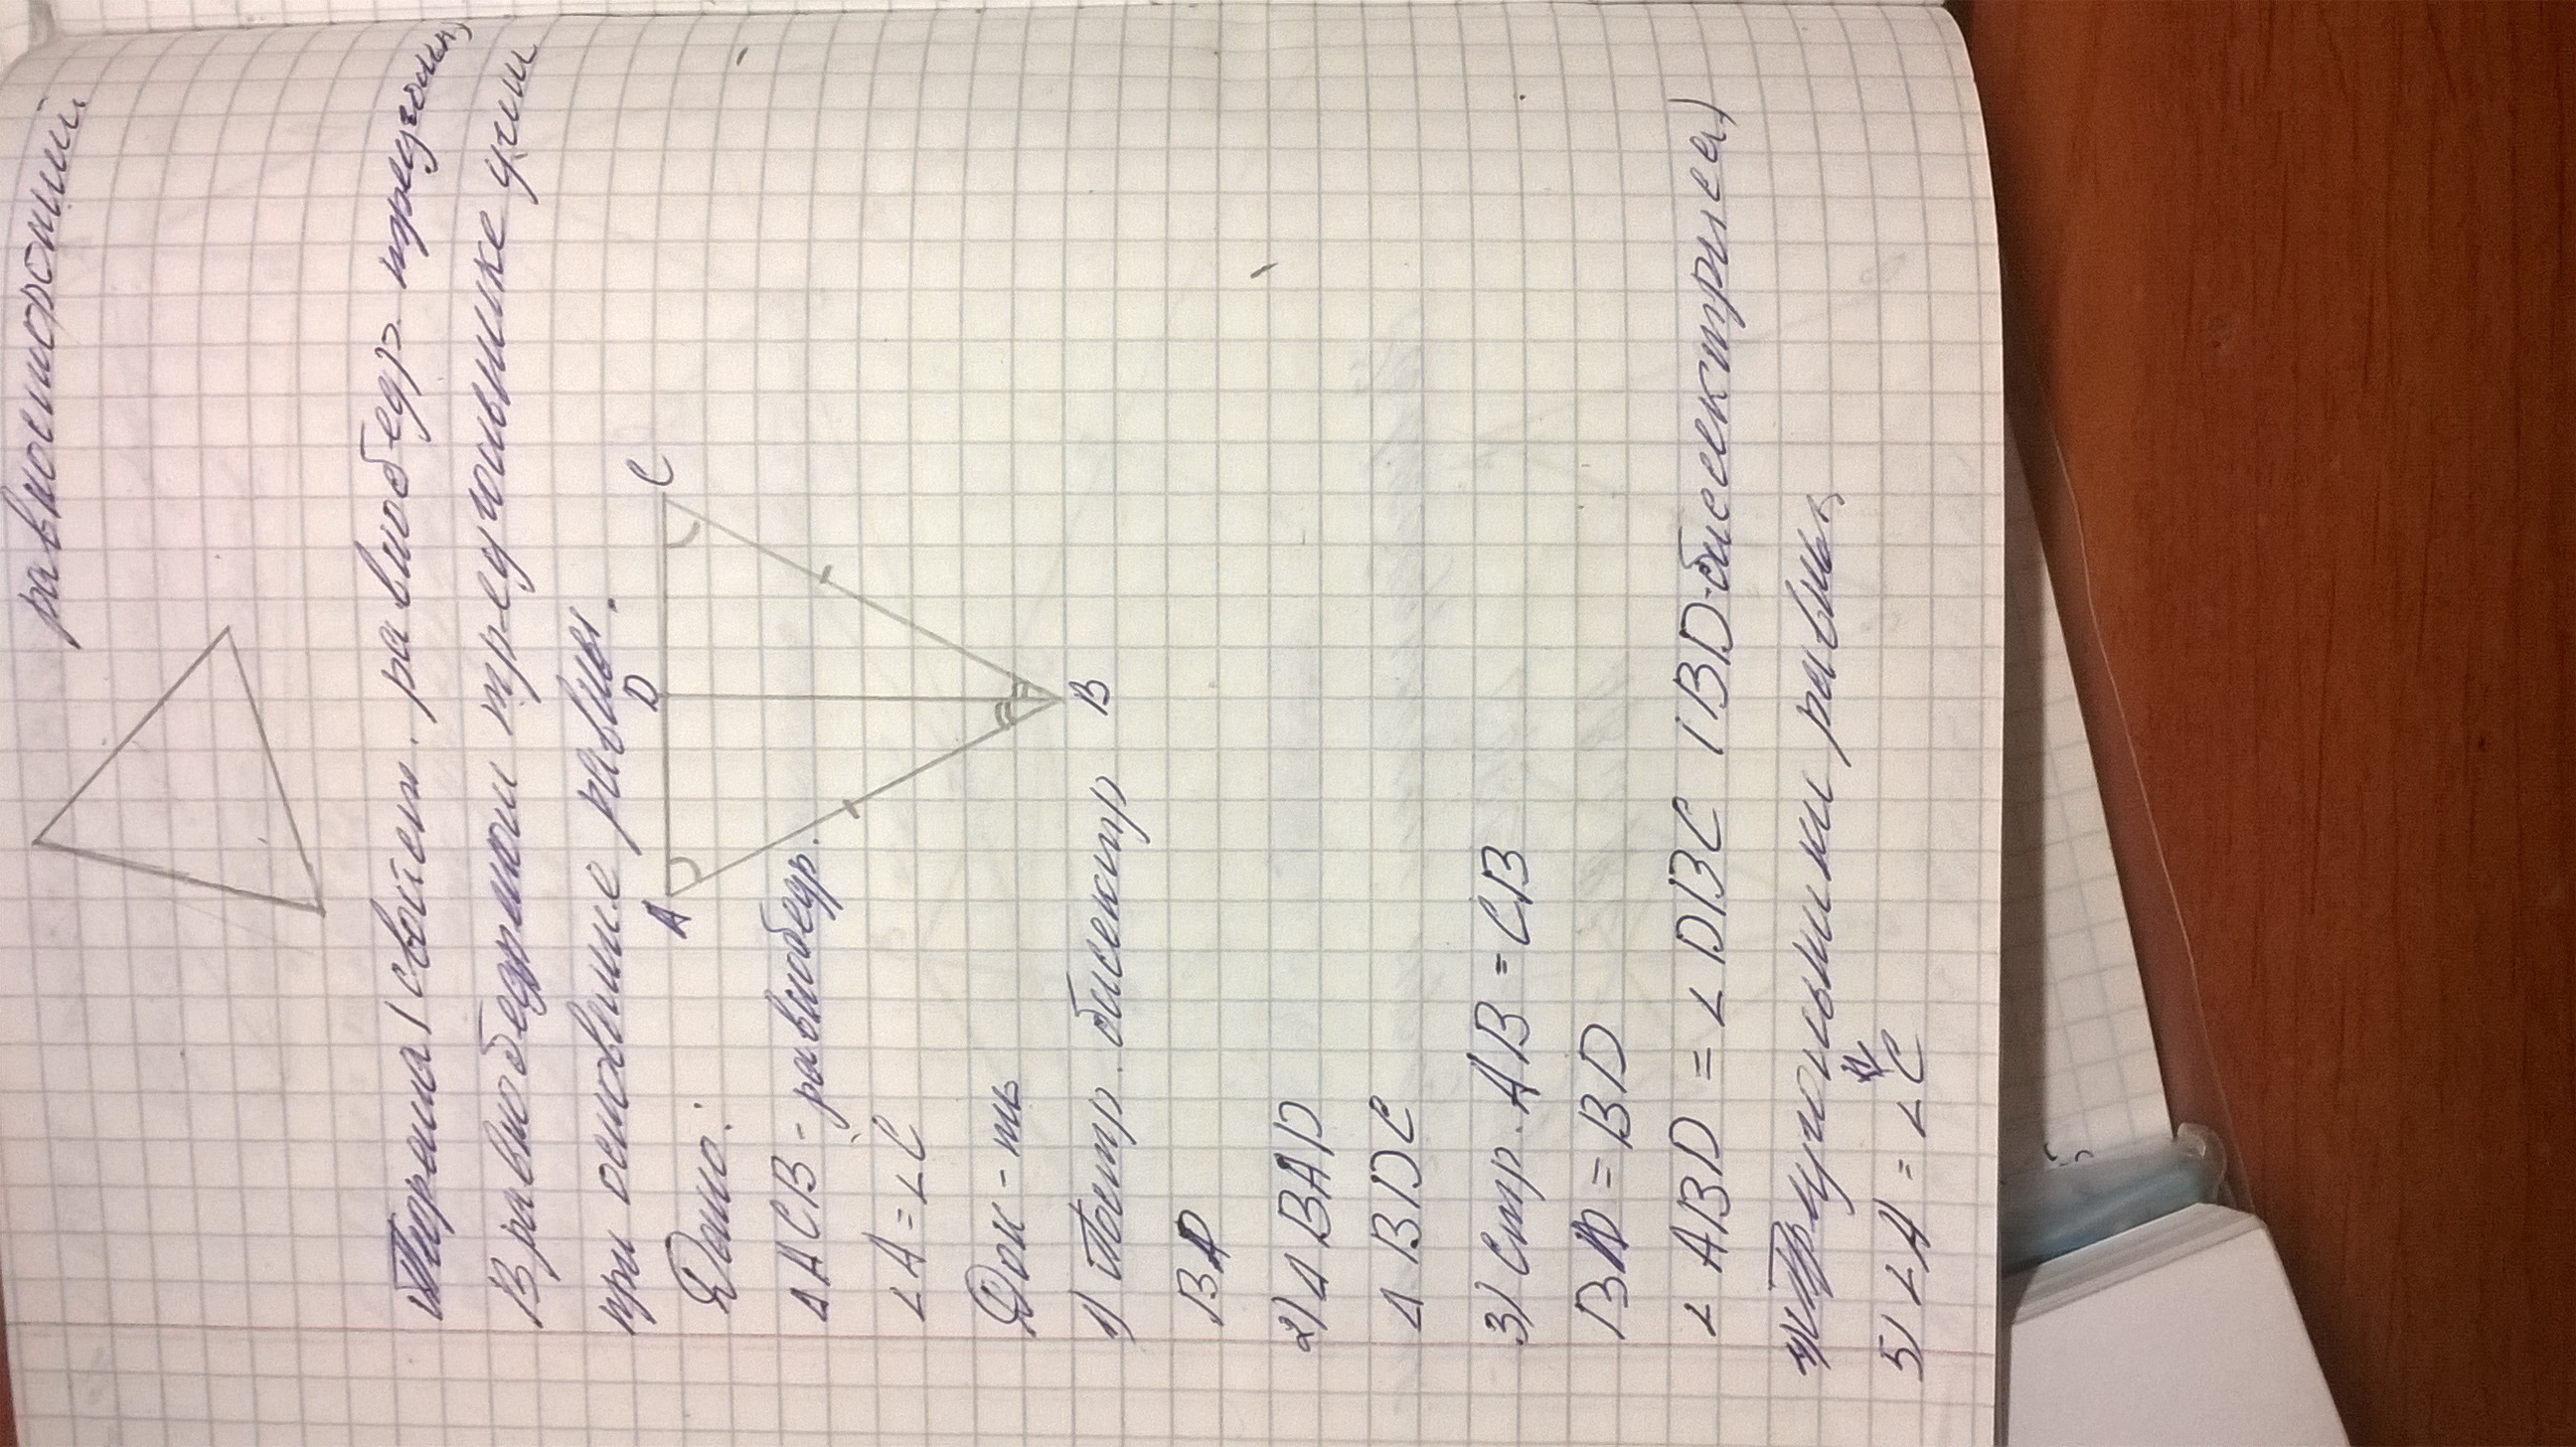 равносторонний
Теорема (свойст. равнобедр. треугольн)
В равнобедренном треугольнике углы
при основание равны.
A D C
B
Дано:
Δ ACB - равнобедр.
∠A = ∠C
Док-ть
1) Постр. бисектр
BD
2) Δ BAD
Δ BDC
3) Стр. AB = CB
BD = BD
∠ABD = ∠DBC (BD-биссектриса)
4) Треугольники равны
5) ∠A = ∠C